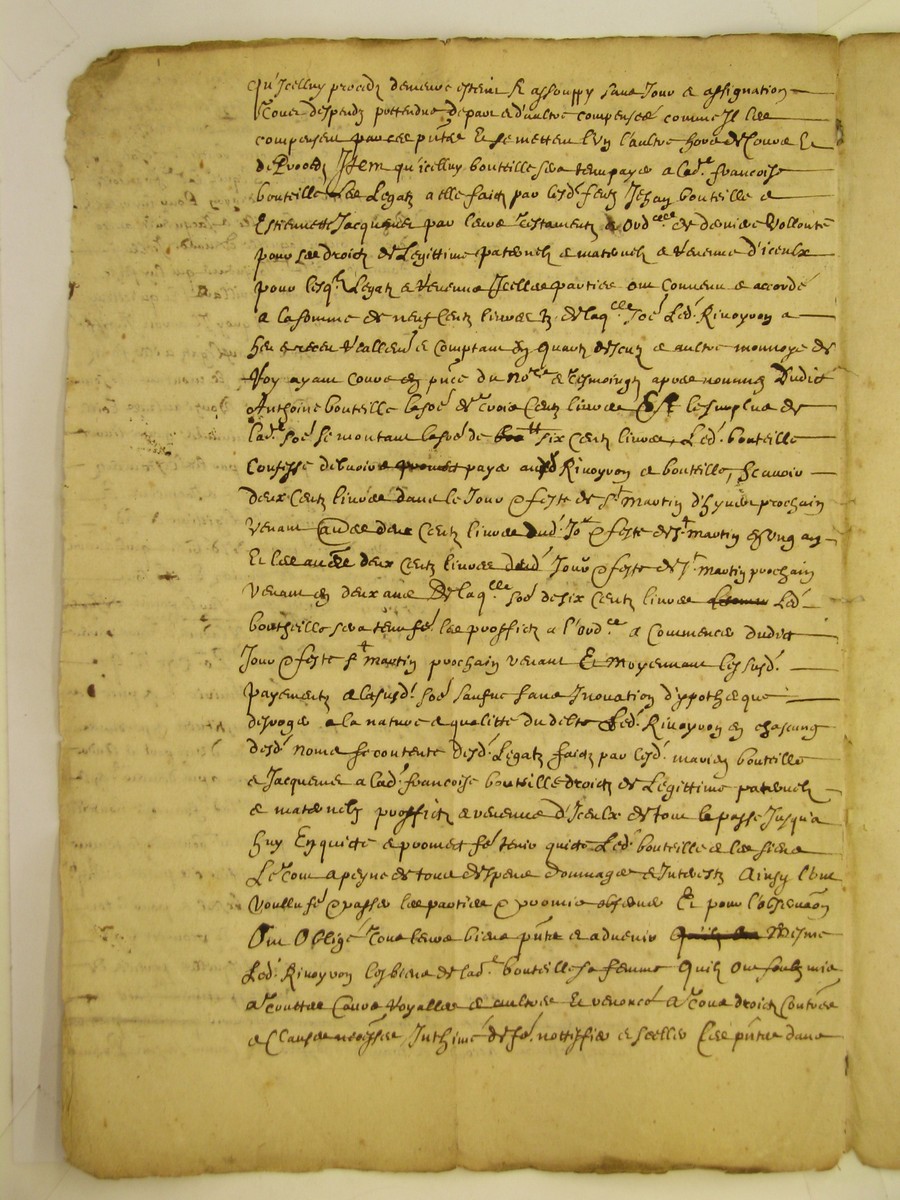 qu'Icelluy proces demeure esteint & assouppy sans Jour e assignation
tous despends prettendus de part e d'aultre compensés comme Ils les
compensent par ces pntes Et se mettent l'un l'aultre hors de Cours Et
de Proces Item qu'icelluy bouteille sera tenu payer a lad.e francoise
bouteille les Legatz a elle faictz par lesd. feuz Jehan bouteille e
Estiennette Jacquemet par leurs testamentz e Ord.ces de derniere vollonté
pour ses droictz de Legittime paternelz e maternelz e revenus d'iceulx
pour lesq.lz Legatz e revenus Icelles parties ont convenu e accordé
a la somme de neuf Centz livres tz de laq.lle soe Led. Rivoyron a
heu e receu reallem.t e comptant en quartz d'escuz e aultre monnoye de
Roy ayant cours en pnce du No.re e tesmoingtz apres nommes Dudict
Anthoine bouteille la soe de trois Centz livres Et le surplus de
lad.e soe se montant la soe de six Centz livres, Led. bouteille
Confesse debvoir e promect payer aud Rivoyron e bouteille, scavoir
deux Centz livres dans le Jour e feste de s.t Martin d'hyver prochain
venant aultres deux Centz livres dud. Jor e feste de s.t martin en ung an
Et les aultres deux Centz livres dud. Jour e feste de s.t martin prochain
venant en deux ans De laq.lle soe de six Centz livres Led.
boutheille sera tenu fe. les proffictz a l'ord.ce a Commencer dudict
Jour e feste s.t martin prochain venant Et Moyennant les susd.
payementz e la susd. soe saufve sans Inovation d'ypotheque
desroger a la nature e qualitte du debte Led. Rivoyron en chascung
desd. noms se contente desd. Legatz faictz par lesd. mariez bouteille
e Jacquemet a lad. francoise bouteille droictz de Legittime paternelz
e maternelz proffictz e revenus d'Iceulx de tout le passe Jusqu'a
huy En quicte e promect fe. tenir quicte Led. bouteille e les siens
Le tout a peyne de tous despens dommages e Interestz Ainsy l'ont
voullu fe. e passer les parties e promis observer Et pour l'observaon
Ont Obligé tous leurs biens pntz e advenir Mesme
Led. Rivoyron les biens de lad.e bouteille sa femme Quilz Ont soubzmis
a touttes Cours Royalles e aultres Et renoncé A tous droictz Contres
e Clauses necessres Inthimé de fe. nottiffier e seeller Ces pntes dans